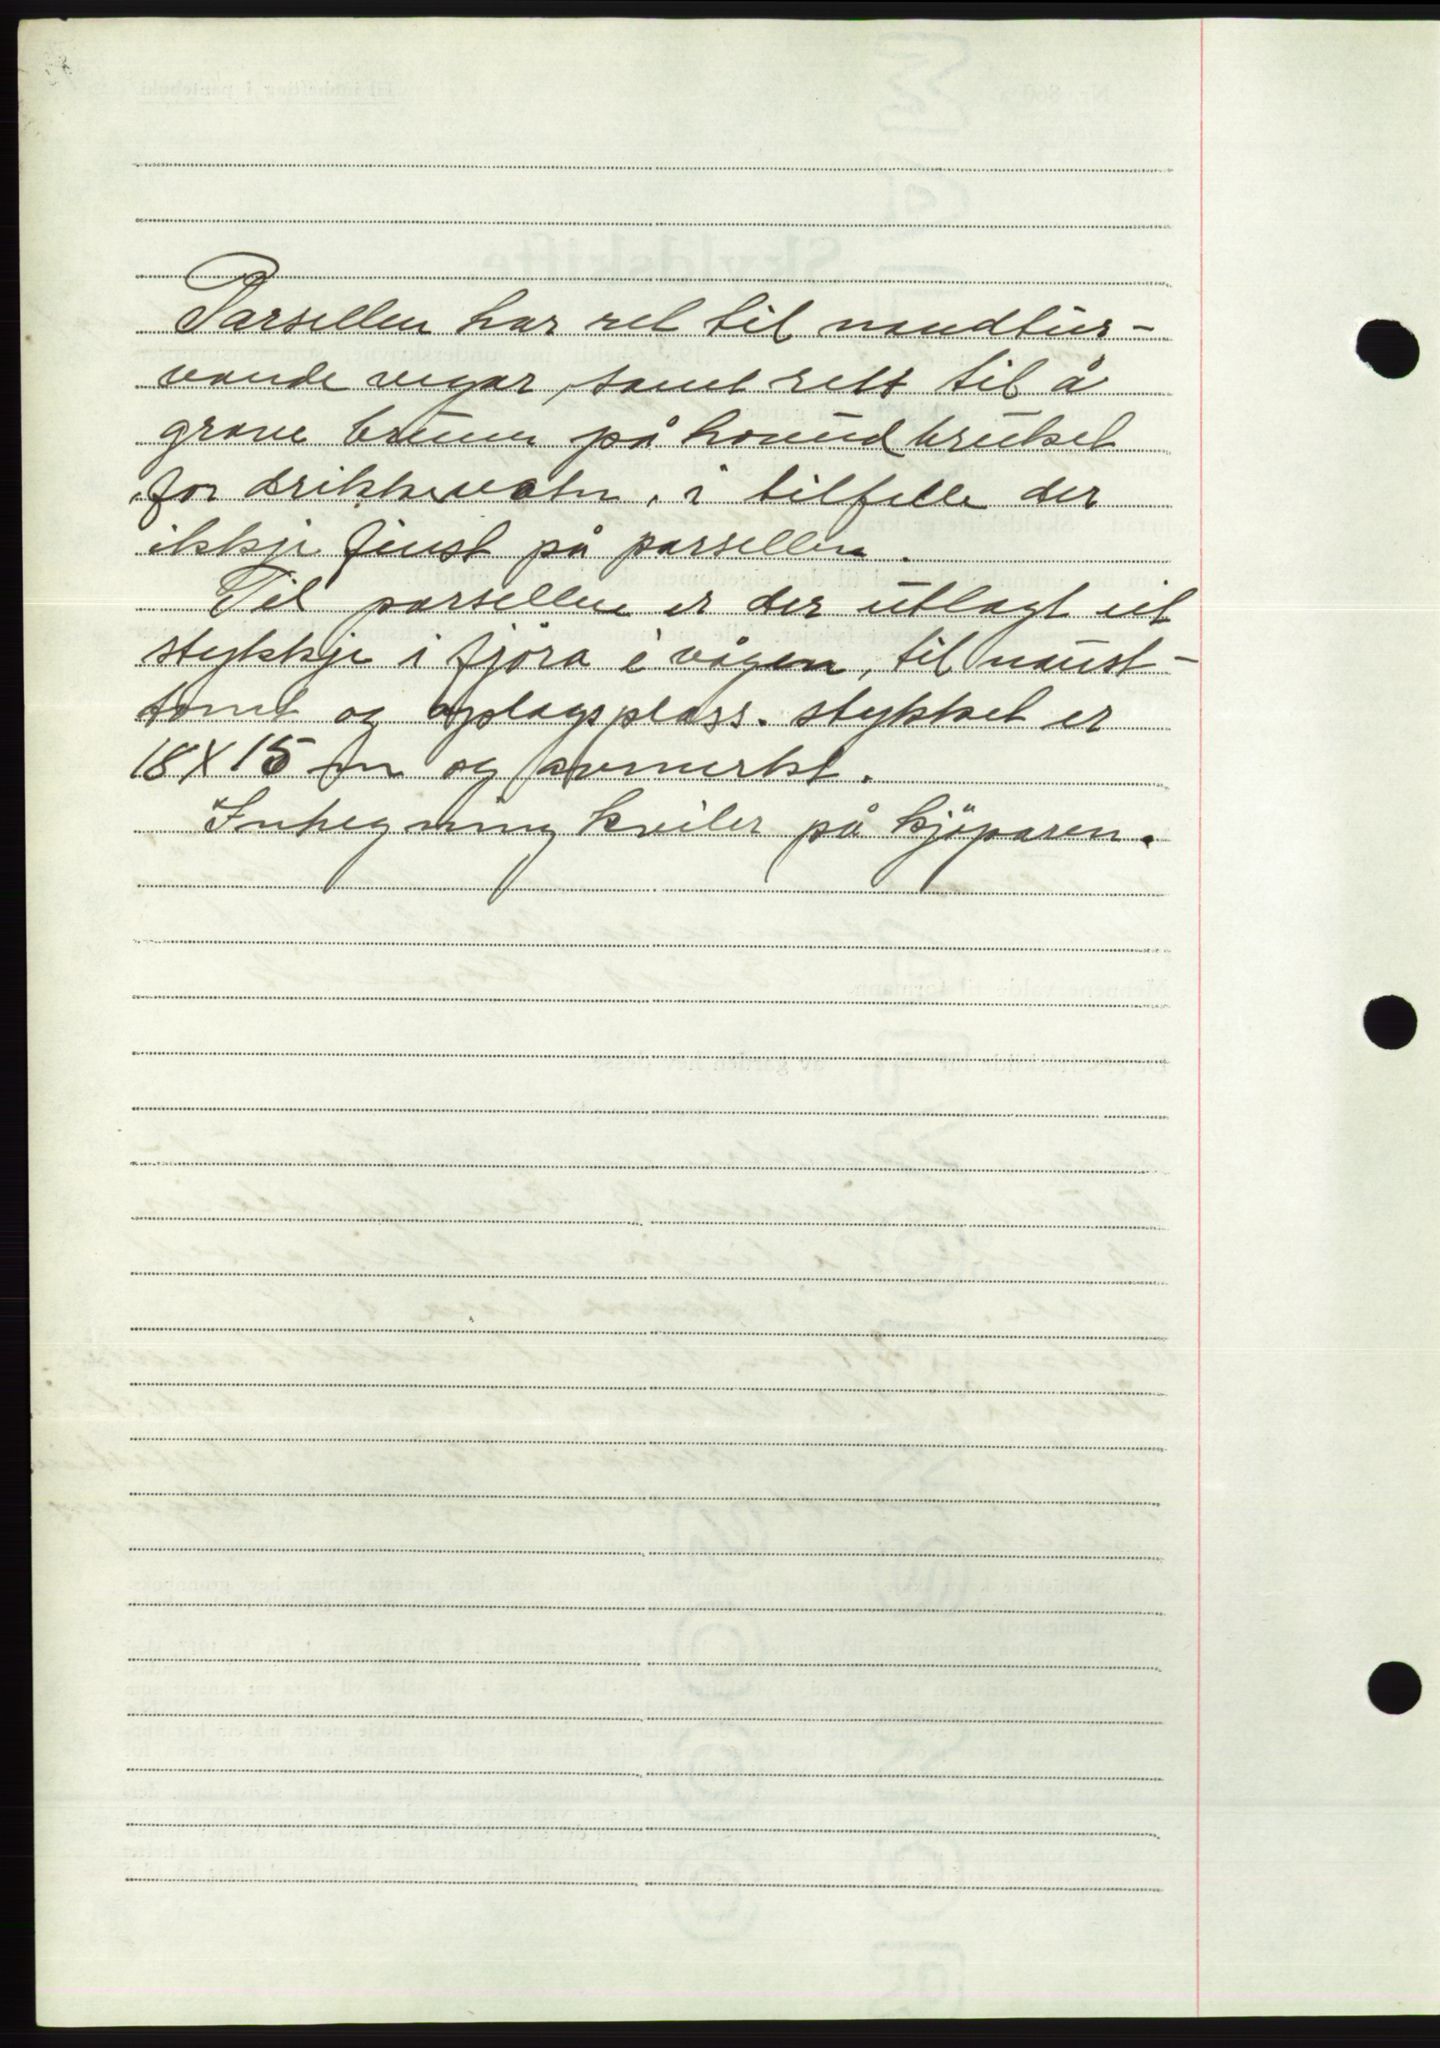 Parsellen har ret til naudtur-
vande vegar, samt rett til å
grave brunn på hovudbruket
for drikkevatn, i tilfelle der
ikkje finst på parsellen.
Til parsellen er der utlagt eit
stykkje i fjöra i vågen, til naust-
tomt og oplagsplass. stykket er
18 X 15 m og avmerkt.
Inhegning kviler på kjöparen.